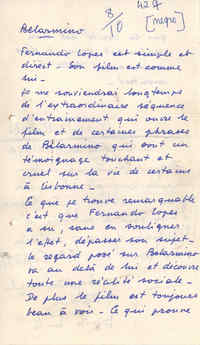 8/10
427
[negro]
Belarmino
Fernando Lopes est simple et
direct - Son film est comme
lui -
Je me souviendrai longtemps
de l'extraordinaire séquence
d'entrainement qui ouvre le
film et de certaines phrases
de Belarmino qui sont un
témoignage touchant et
cruel sur la vie de certains
à Lisbonne -
Ce que je trouve remarquable
c'est que Fernando Lopes
a su, sans en souligner
l'effet, dépasser son sujet -
le regard posé sur Belarmino
va au delà de lui et découvre
toute une réalité sociale -
De plus le film est toujours
beau à voir - Ce qui prouve